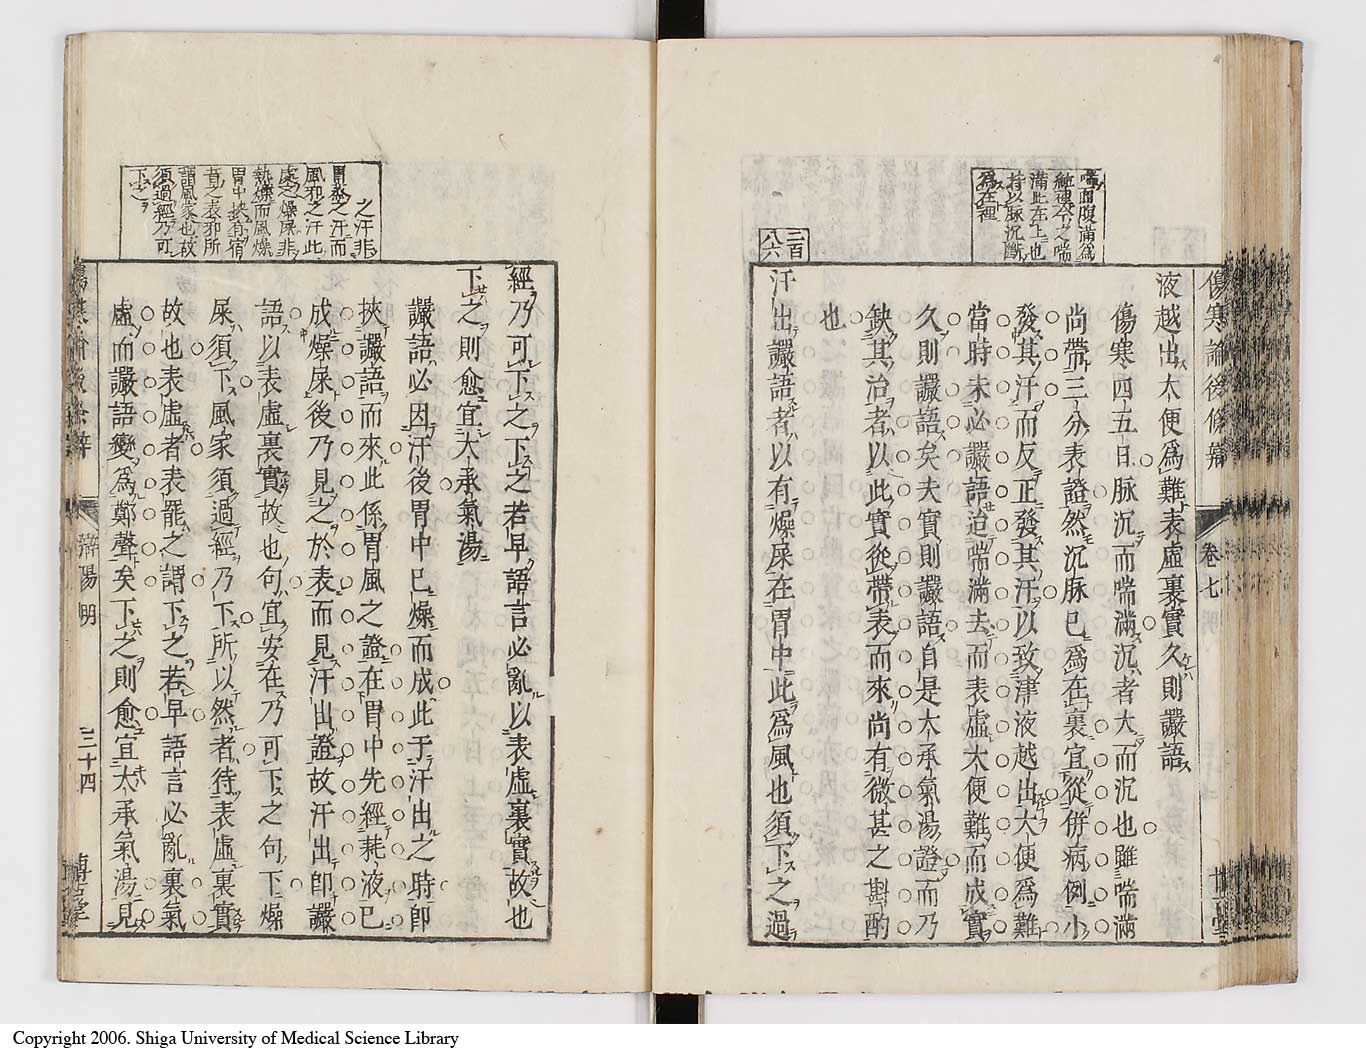 喘
滿此在上也
爲在裡
傷寒論後條辨
卷七
液越出大便爲難表虛裏實久則讝語
傷寒四五日脉沉而喘滿沉者大而沉也雖喘滿
尚帶三分表證然沉脉已爲在裏宜從併病例小
發其汗而反正發其汗以致津液越出大便爲難
當時未必讝語迨喘滿去而表虛大便難而成實
久則讝語矣夫實則讝語自是大承氣湯證而乃
缺其治者以此實從帶表而來尚有微甚之斟酌
也
二百
八六
汗出讝語者以有燥屎在胃中此爲風也須下之過
經乃可下之下之若早語言必亂以表虛裏實故也
下之則愈宜大承氣湯
讝語必因汗後胃中已燥而成此于汗出之時卽
挾讝語而來此係胃風之證在胃中先經耗液已
成燥屎後乃見之於表而見汗出證故汗出卽讝
語以表虛裏實故也句宜安在乃可下之句下燥
屎須下風家須過經乃下所以然者待表虛裏實
故也表虛者表罷之謂下之若早語言必亂裏氣
虛而讝語變爲鄭聲矣下之則愈宜大承氣湯見
之汗非
胃發之汗而
風邪之汗此
處之燥屎非
熱燥而風燥
胃中挾有宿
謂風家也故
須過經乃可
下之
辨陽明
三十四